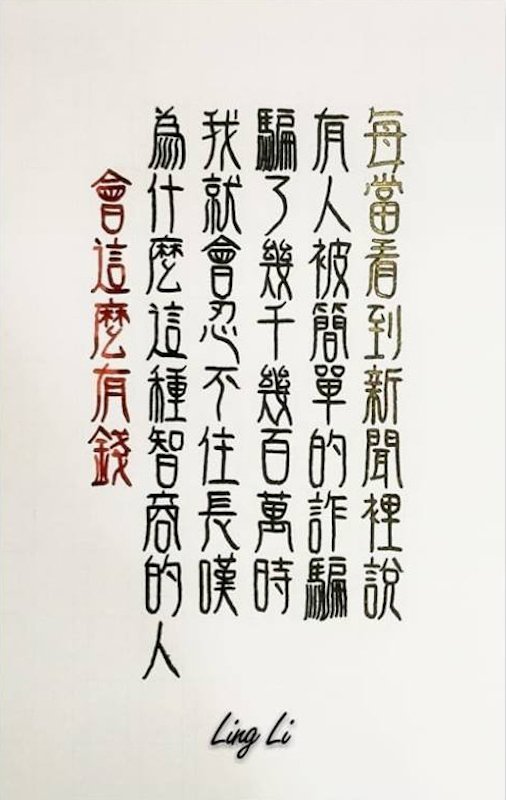 每當看到新聞裡說
有人被簡單的詐騙
騙了幾千幾百萬時
我就會忍不住長嘆
為什麼這種智商的人
會這麼有錢
Ling Li